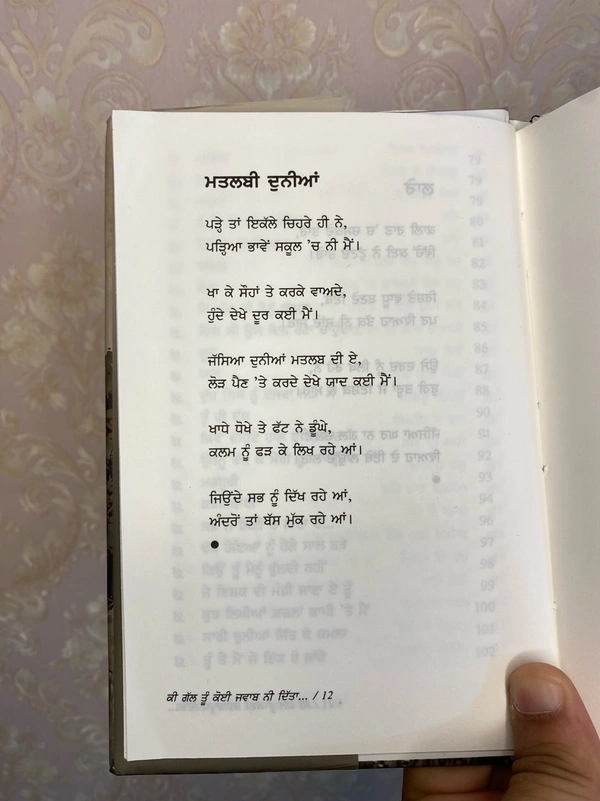 ਮਤਲਬੀ ਦੁਨੀਆਂ
ਪੜ੍ਹੇ ਤਾਂ ਇਕੱਲੇ ਚਿਹਰੇ ਹੀ ਨੇ,
ਪੜ੍ਹਿਆ ਭਾਵੇਂ ਸਕੂਲ 'ਚ ਨੀ ਮੈਂ।
ਖਾ ਕੇ ਸੌਹਾਂ ਤੇ ਕਰਕੇ ਵਾਅਦੇ,
ਹੁੰਦੇ ਦੇਖੇ ਦੂਰ ਕਈ ਮੈਂ।
ਜੱਸਿਆ ਦੁਨੀਆਂ ਮਤਲਬ ਦੀ ਏ,
ਲੋੜ ਪੈਣ 'ਤੇ ਕਰਦੇ ਦੇਖੇ ਯਾਦ ਕਈ ਮੈਂ।
ਖਾਧੇ ਧੋਖੇ ਤੇ ਫੱਟ ਨੇ ਡੂੰਘੇ,
ਕਲਮ ਨੂੰ ਫੜ ਕੇ ਲਿਖ ਰਹੇ ਆਂ।
ਜਿਉਂਦੇ ਸਭ ਨੂੰ ਦਿੱਖ ਰਹੇ ਆਂ,
ਅੰਦਰੋਂ ਤਾਂ ਬੱਸ ਮੁੱਕ ਰਹੇ ਆਂ।
ਕੀ ਗੱਲ ਤੂੰ ਕੋਈ ਜਵਾਬ ਨੀ ਦਿੱਤਾ... / 12